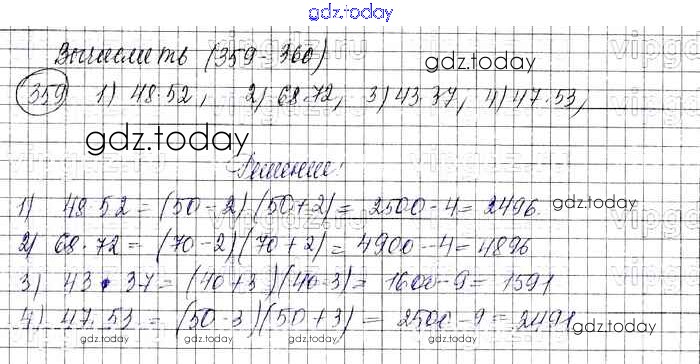 gdz.today
Вычислить (359-360) gdz.today
359 1) 48·52, 2) 68·72, 3) 43·37, 4) 47·53,
gdz.today
Решение:
1) 48·52 = (50-2)(50+2) = 2500-4 = 2496 gdz.today
2) 68·72 = (70-2)(70+2) = 4900-4 = 4896
3) 43·37 = (40+3)(40-3) = 1600-9 = 1591
4) 47·53 = (50-3)(50+3) = 2500-9 = 2491
gdz.today gdz.today gdz.today